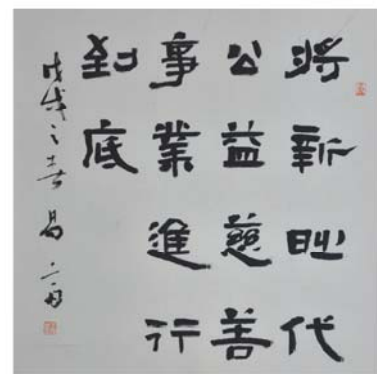 將新時代
公益慈善
事業進行
到底
戊戌之